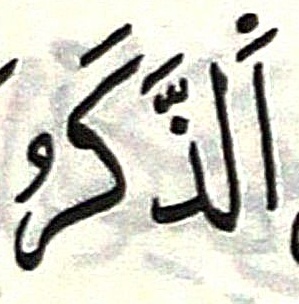 اَلذَّكَرُ